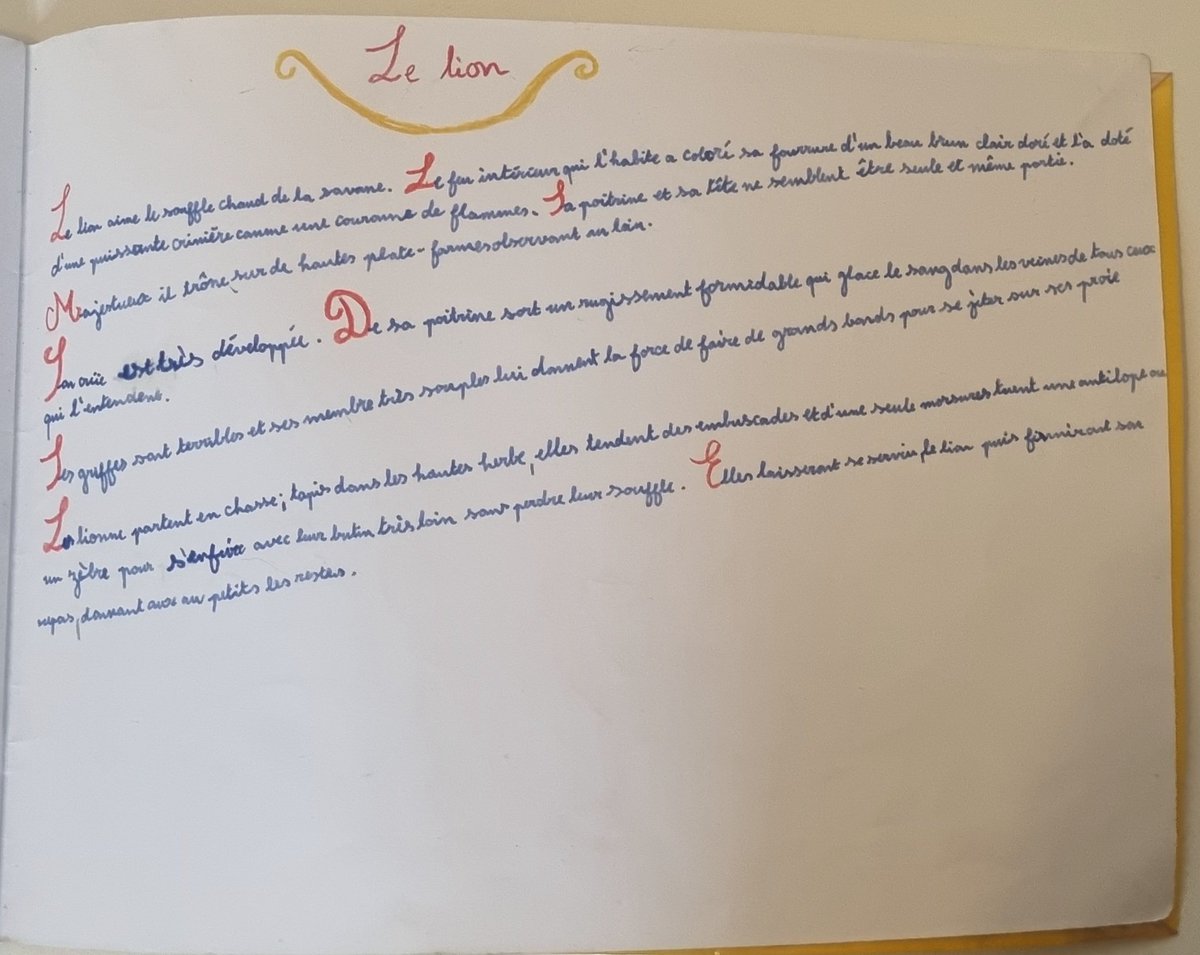 Le lion
Le lion aime le souffle chaud de la savane. Le feu intérieur qui l'habite a coloré sa fourrure d'un beau brun clair doré et l'a doté
d'une puissante crinière comme une couronne de flammes. Sa poitrine et sa tête ne semblent être seule et même partie.
Majestueux il trône sur de hautes plate-formes observant au loin.
Son ouïe est très développée. De sa poitrine sort un rugissement formidable qui glace le sang dans les veines de tous ceux
qui l'entendent.
Ses griffes sont terribles et ses membre très souples lui donnent la force de faire de grands bonds pour se jeter sur ses proie
Les lionne partent en chasse; tapis dans les hautes herbe, elles tendent des embuscades et d'une seule morsures tuent une antilope ou
un zèbre pour s'enfuire avec leur butin très loin sans perdre leur souffle. Elles laisseront se servir, le lion puis finiront son
repas, donnant aux petits les restes.